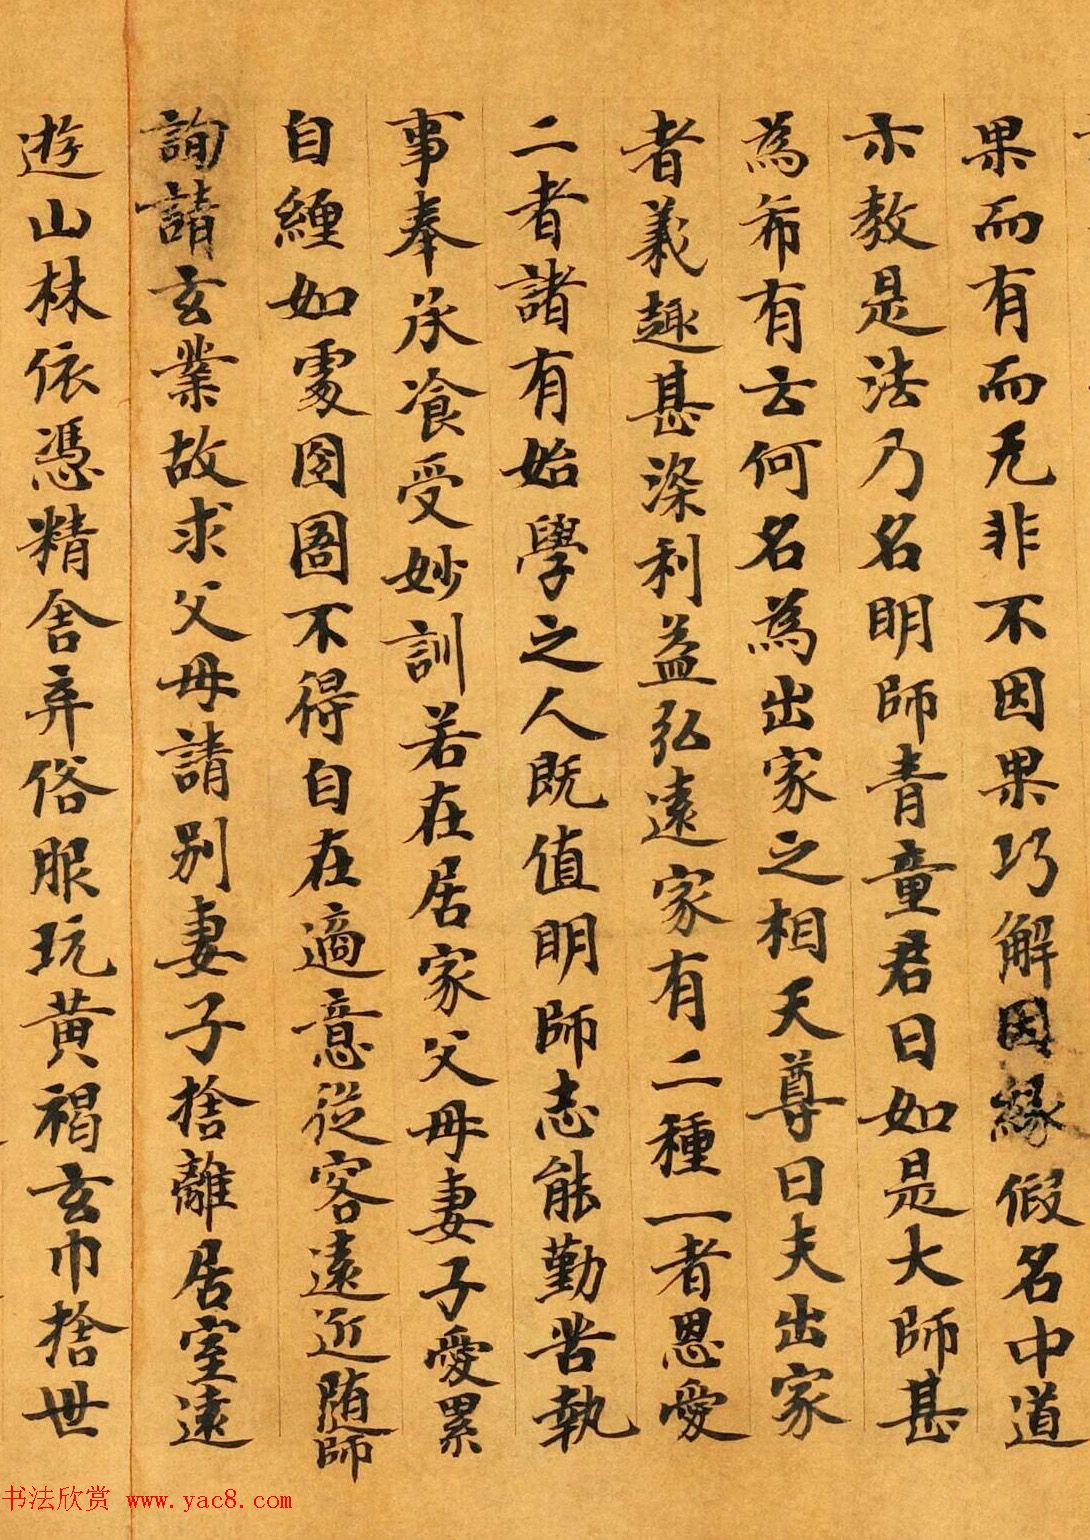 果而有而无非不因果巧解因緣假名中道
示教是法乃名明師青童君曰如是大師甚
為希有云何名為出家之相天尊曰夫出家
者義趣甚深利益弘遠家有二種一者恩愛
二者諸有始學之人既值明師志能勤苦執
事奉承飡受妙訓若在居家父母妻子愛累
自纏如處囹圄不得自在適意從容遠近随師
詢請玄業故求父母請別妻子捨離居室遠
遊山林依憑精舍弃俗服玩黃褐玄巾捨世
书法欣赏 www.yac8.com